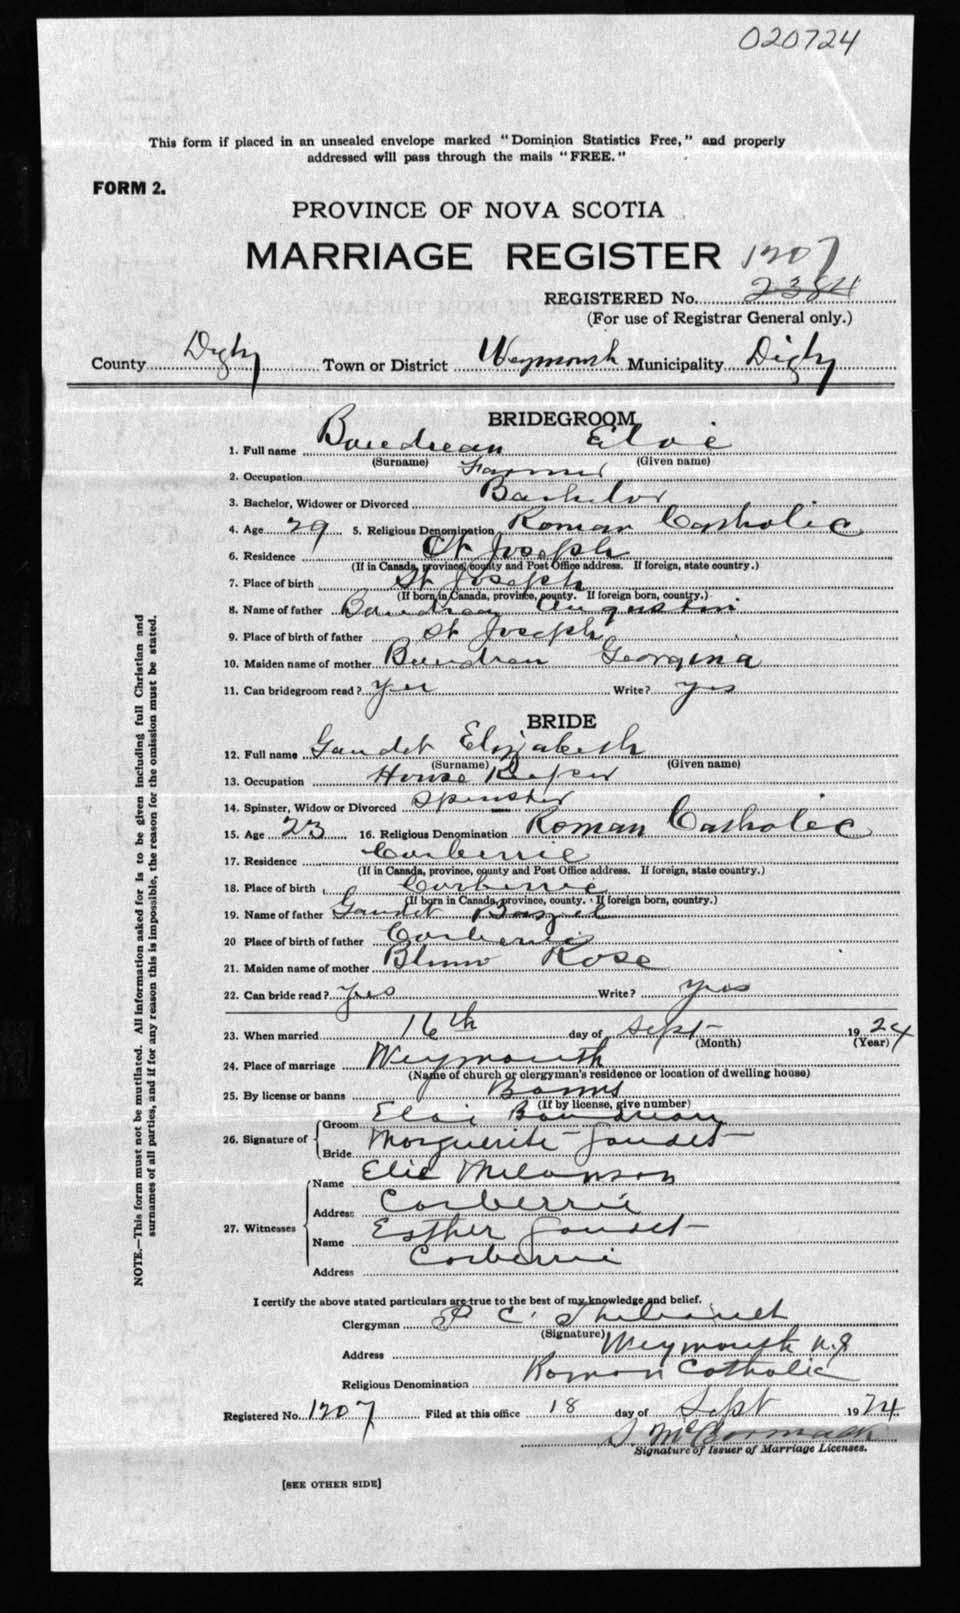 020724
This form if placed in an unsealed envelope marked "Dominion Statistics Free," and properly
addressed will pass through the mails "FREE."
FORM 2.
PROVINCE OF NOVA SCOTIA
MARRIAGE REGISTER 1207
REGISTERED No. 2384
(For use of Registrar General only.)
County Digby Town or District Weymouth Municipality Digby
BRIDEGROOM
1. Full name Boudreau Eloi
(Surname) (Given name)
2. Occupation Farmer
3. Bachelor, Widower or Divorced Bachelor
4. Age 29 5. Religious Denomination Roman Catholic
6. Residence St Joseph
(If in Canada, province, county and Post Office address. If foreign, state country.)
7. Place of birth St Joseph
(If born in Canada, province, county. If foreign born, country.)
8. Name of father Boudreau Augustin
9. Place of birth of father St Joseph
10. Maiden name of mother Boudreau Georgina
11. Can bridegroom read? yes Write? yes
BRIDE
12. Full name Gaudet Elizabeth
(Surname) (Given name)
13. Occupation House Keeper
14. Spinster, Widow or Divorced Spinster
15. Age 23 16. Religious Denomination Roman Catholic
17. Residence Corberrie
(If in Canada, province, county and Post Office address. If foreign, state country.)
18. Place of birth Corberrie
(If born in Canada, province, county. If foreign born, country.)
19. Name of father Gaudet Bazil
20 Place of birth of father Corberrie
21. Maiden name of mother Rose
22. Can bride read? Yes Write? yes
23. When married 16th day of Sept 1924
(Month) (Year)
24. Place of marriage Weymouth
(Name of church or clergyman's residence or location of dwelling house)
25. By license or banns Banns
(If by license, give number)
26. Signature of Groom Eloi Boudreau
Bride Marguerite Gaudet
27. Witnesses Name Elie Melanson
Address Corberrie
Name Esther Gaudet
Address Corberrie
I certify the above stated particulars are true to the best of my knowledge and belief.
Clergyman P C Thibault
(Signature)
Address Weymouth N.S
Religious Denomination Roman Catholic
Registered No. 1207 Filed at this office 18 day of Sept 1924
McCormack
Signature of Issuer of Marriage Licenses.
[SEE OTHER SIDE]
NOTE.—This form must not be mutilated. All information asked for is to be given including full Christian and
surnames of all parties, and if for any reason this is impossible, the reason for the omission must be stated.